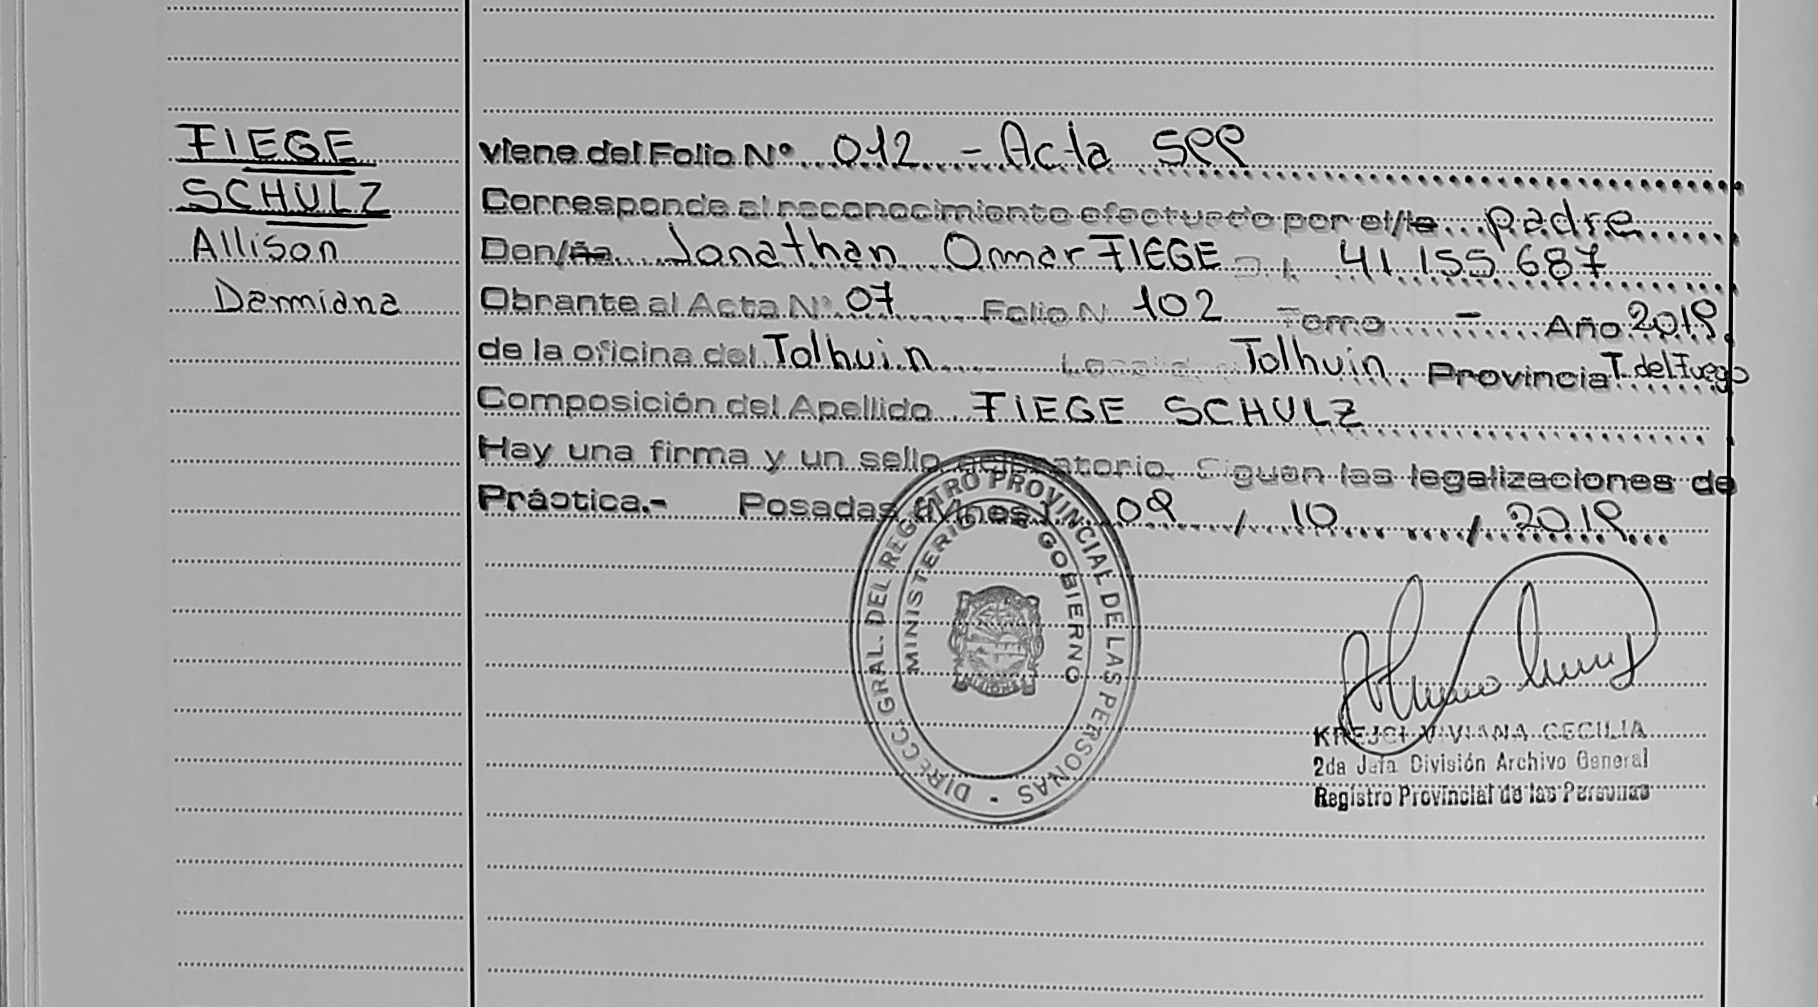 FIEGE
SCHULZ
Allison
Damiana
viene del Folio Nº 012 - Acta 599
Corresponde al reconocimiento efectuado por el/la padre
Don/ña Jonathan Omar FIEGE D.I. 41.155.687
Obrante al Acta Nº 07 Folio N 102 Tomo - Año 2019
de la oficina del Tolhuin Localid. Tolhuin Provincia T. del Fuego
Composición del Apellido FIEGE SCHULZ
Hay una firma y un sello aclaratorio. Siguen las legalizaciones de
Práctica.- Posadas (Mnes). 09 / 10 / 2019
DIRECC. GRAL. DEL REGISTRO PROVINCIAL DE LAS PERSONAS
MINISTERIO DE GOBIERNO
KREJCI VIVIANA CECILIA
2da Jefa División Archivo General
Registro Provincial de las Personas